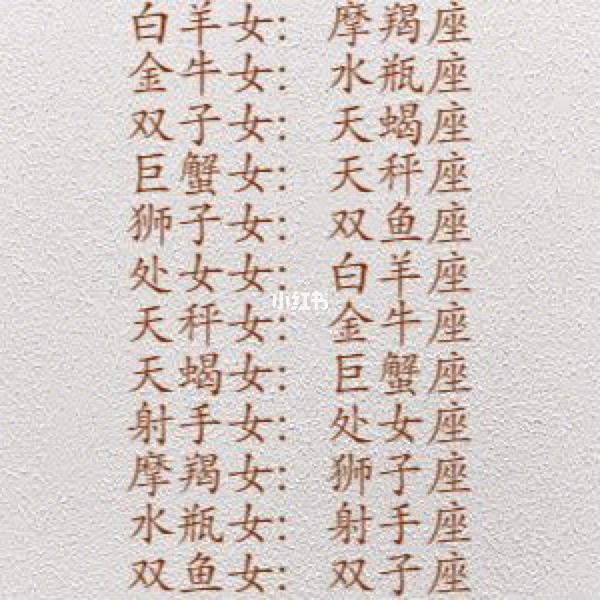 白羊女: 摩羯座
金牛女: 水瓶座
双子女: 天蝎座
巨蟹女: 天秤座
狮子女: 双鱼座
处女女: 白羊座
小红书
天秤女: 金牛座
天蝎女: 巨蟹座
射手女: 处女座
摩羯女: 狮子座
水瓶女: 射手座
双鱼女: 双子座